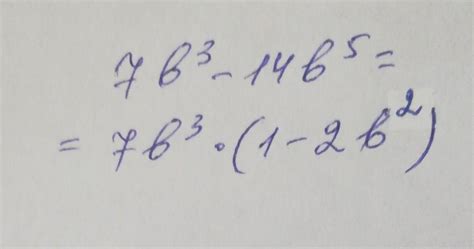 7b³ - 14b⁵ =
= 7b³ · (1 - 2b²)